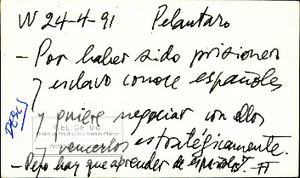 W 24-4-91 Pelantaro
- Por haber sido prisionero
y esclavo conoce españoles
y quiere negociar con ellos
y vencerlos estratégicamente.
- Pepo hay que aprender de españoles". H